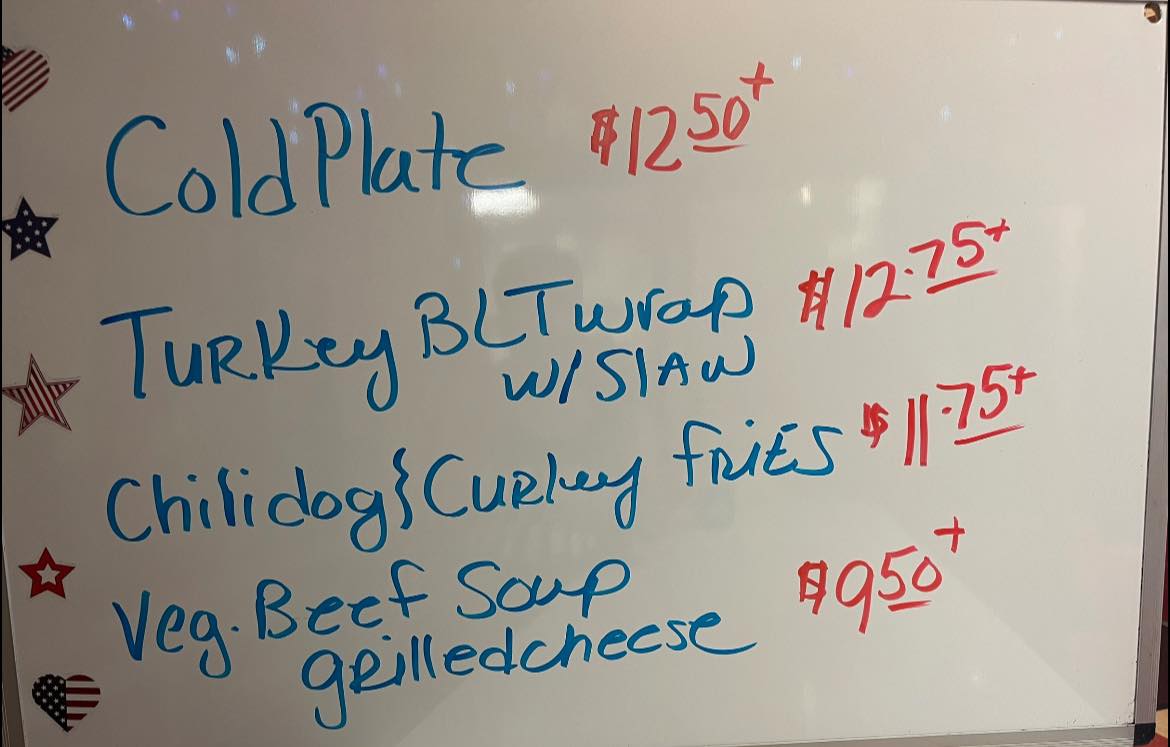 Cold Plate $12 50+
Turkey BLT wrap $12.75+
w/ Slaw
Chilidog } Curley fries $11.75+
Veg. Beef Soup $9 50+
grilled cheese